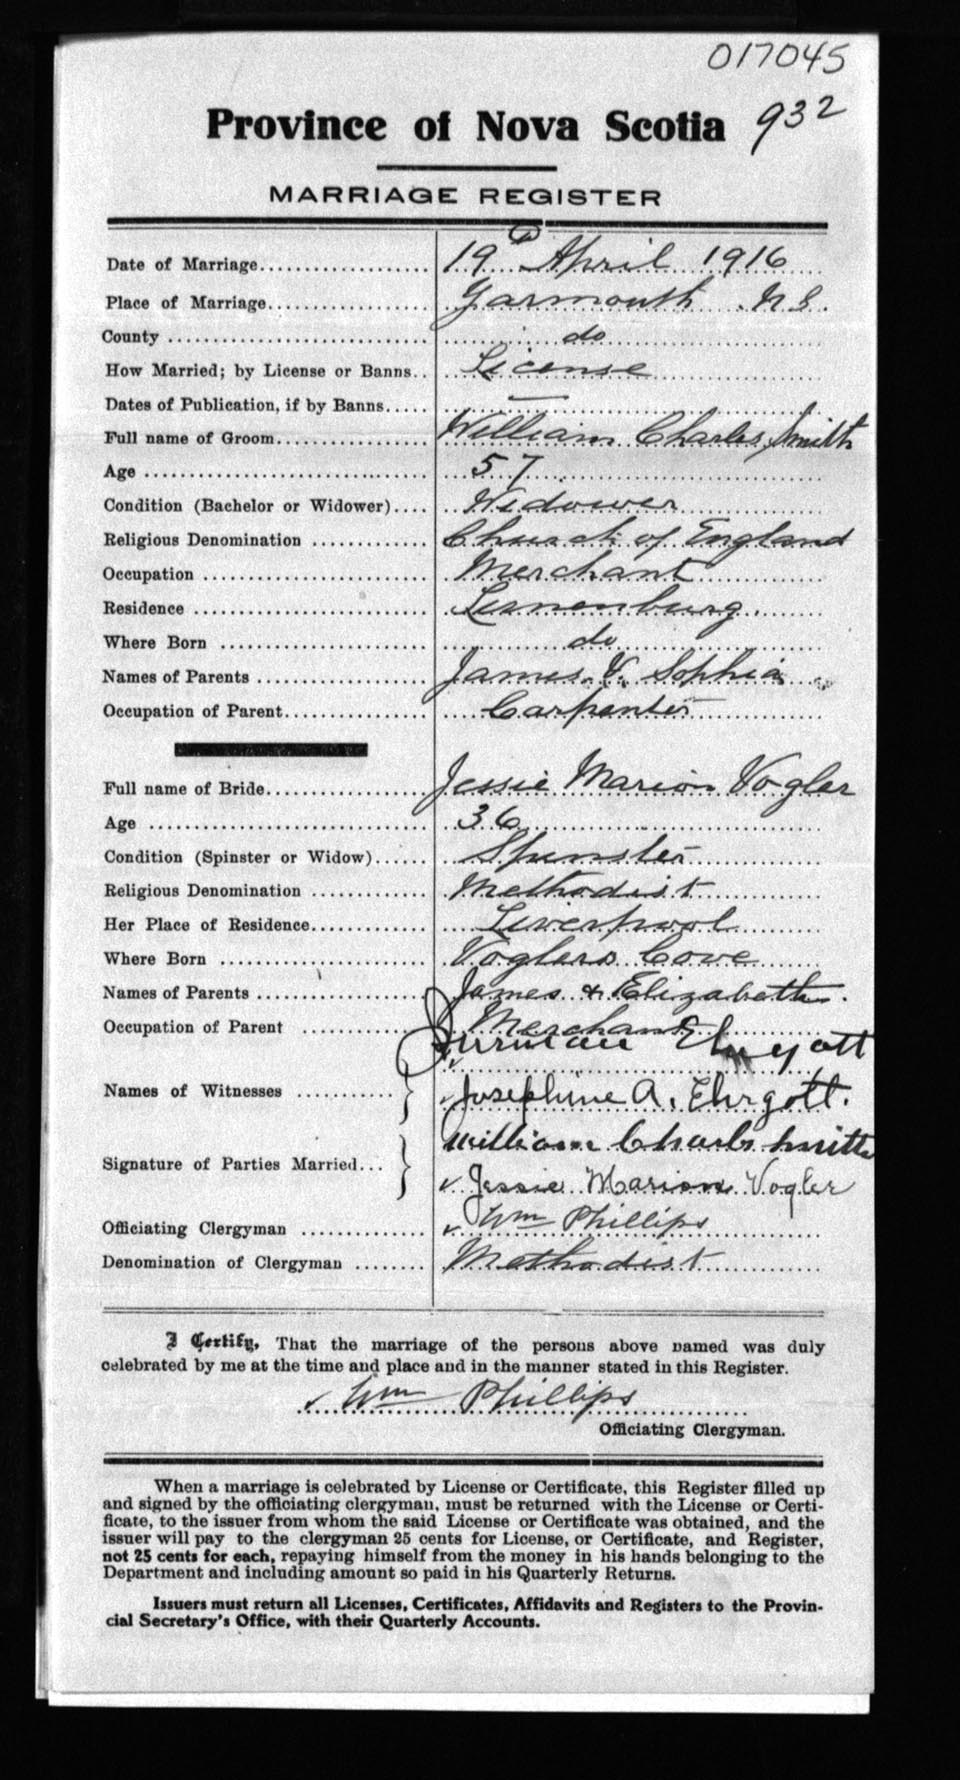 017045
Province of Nova Scotia 932
MARRIAGE REGISTER
Date of Marriage.................... 19 April 1916
Place of Marriage................... Yarmouth N.S.
County ............................. do
How Married; by License or Banns.. License
Dates of Publication, if by Banns..... —
Full name of Groom.................. William Charles Smith
Age ................................ 57
Condition (Bachelor or Widower).... Widower
Religious Denomination ............. Church of England
Occupation ......................... Merchant
Residence .......................... Lunenburg
Where Born ......................... do
Names of Parents ................... James & Sophia
Occupation of Parent................ Carpenter
Full name of Bride.................. Jessie Marion Vogler
Age ................................ 36
Condition (Spinster or Widow)...... Spinster
Religious Denomination ............. Methodist
Her Place of Residence............. Liverpool
Where Born ......................... Voglers Cove
Names of Parents ................... James & Elizabeth.
Occupation of Parent ............... Merchant
Ehrgott
Names of Witnesses ............ Josephine A. Ehrgott.
William Charles Smith
Signature of Parties Married... Jessie Marion Vogler
Officiating Clergyman .............. Wm Phillips
Denomination of Clergyman ........ Methodist
I Certify, That the marriage of the persons above named was duly
celebrated by me at the time and place and in the manner stated in this Register.
Wm Phillips
Officiating Clergyman.
When a marriage is celebrated by License or Certificate, this Register filled up
and signed by the officiating clergyman, must be returned with the License or Certi-
ficate, to the issuer from whom the said License or Certificate was obtained, and the
issuer will pay to the clergyman 25 cents for License, or Certificate, and Register,
not 25 cents for each, repaying himself from the money in his hands belonging to the
Department and including amount so paid in his Quarterly Returns.
Issuers must return all Licenses, Certificates, Affidavits and Registers to the Provin-
cial Secretary's Office, with their Quarterly Accounts.